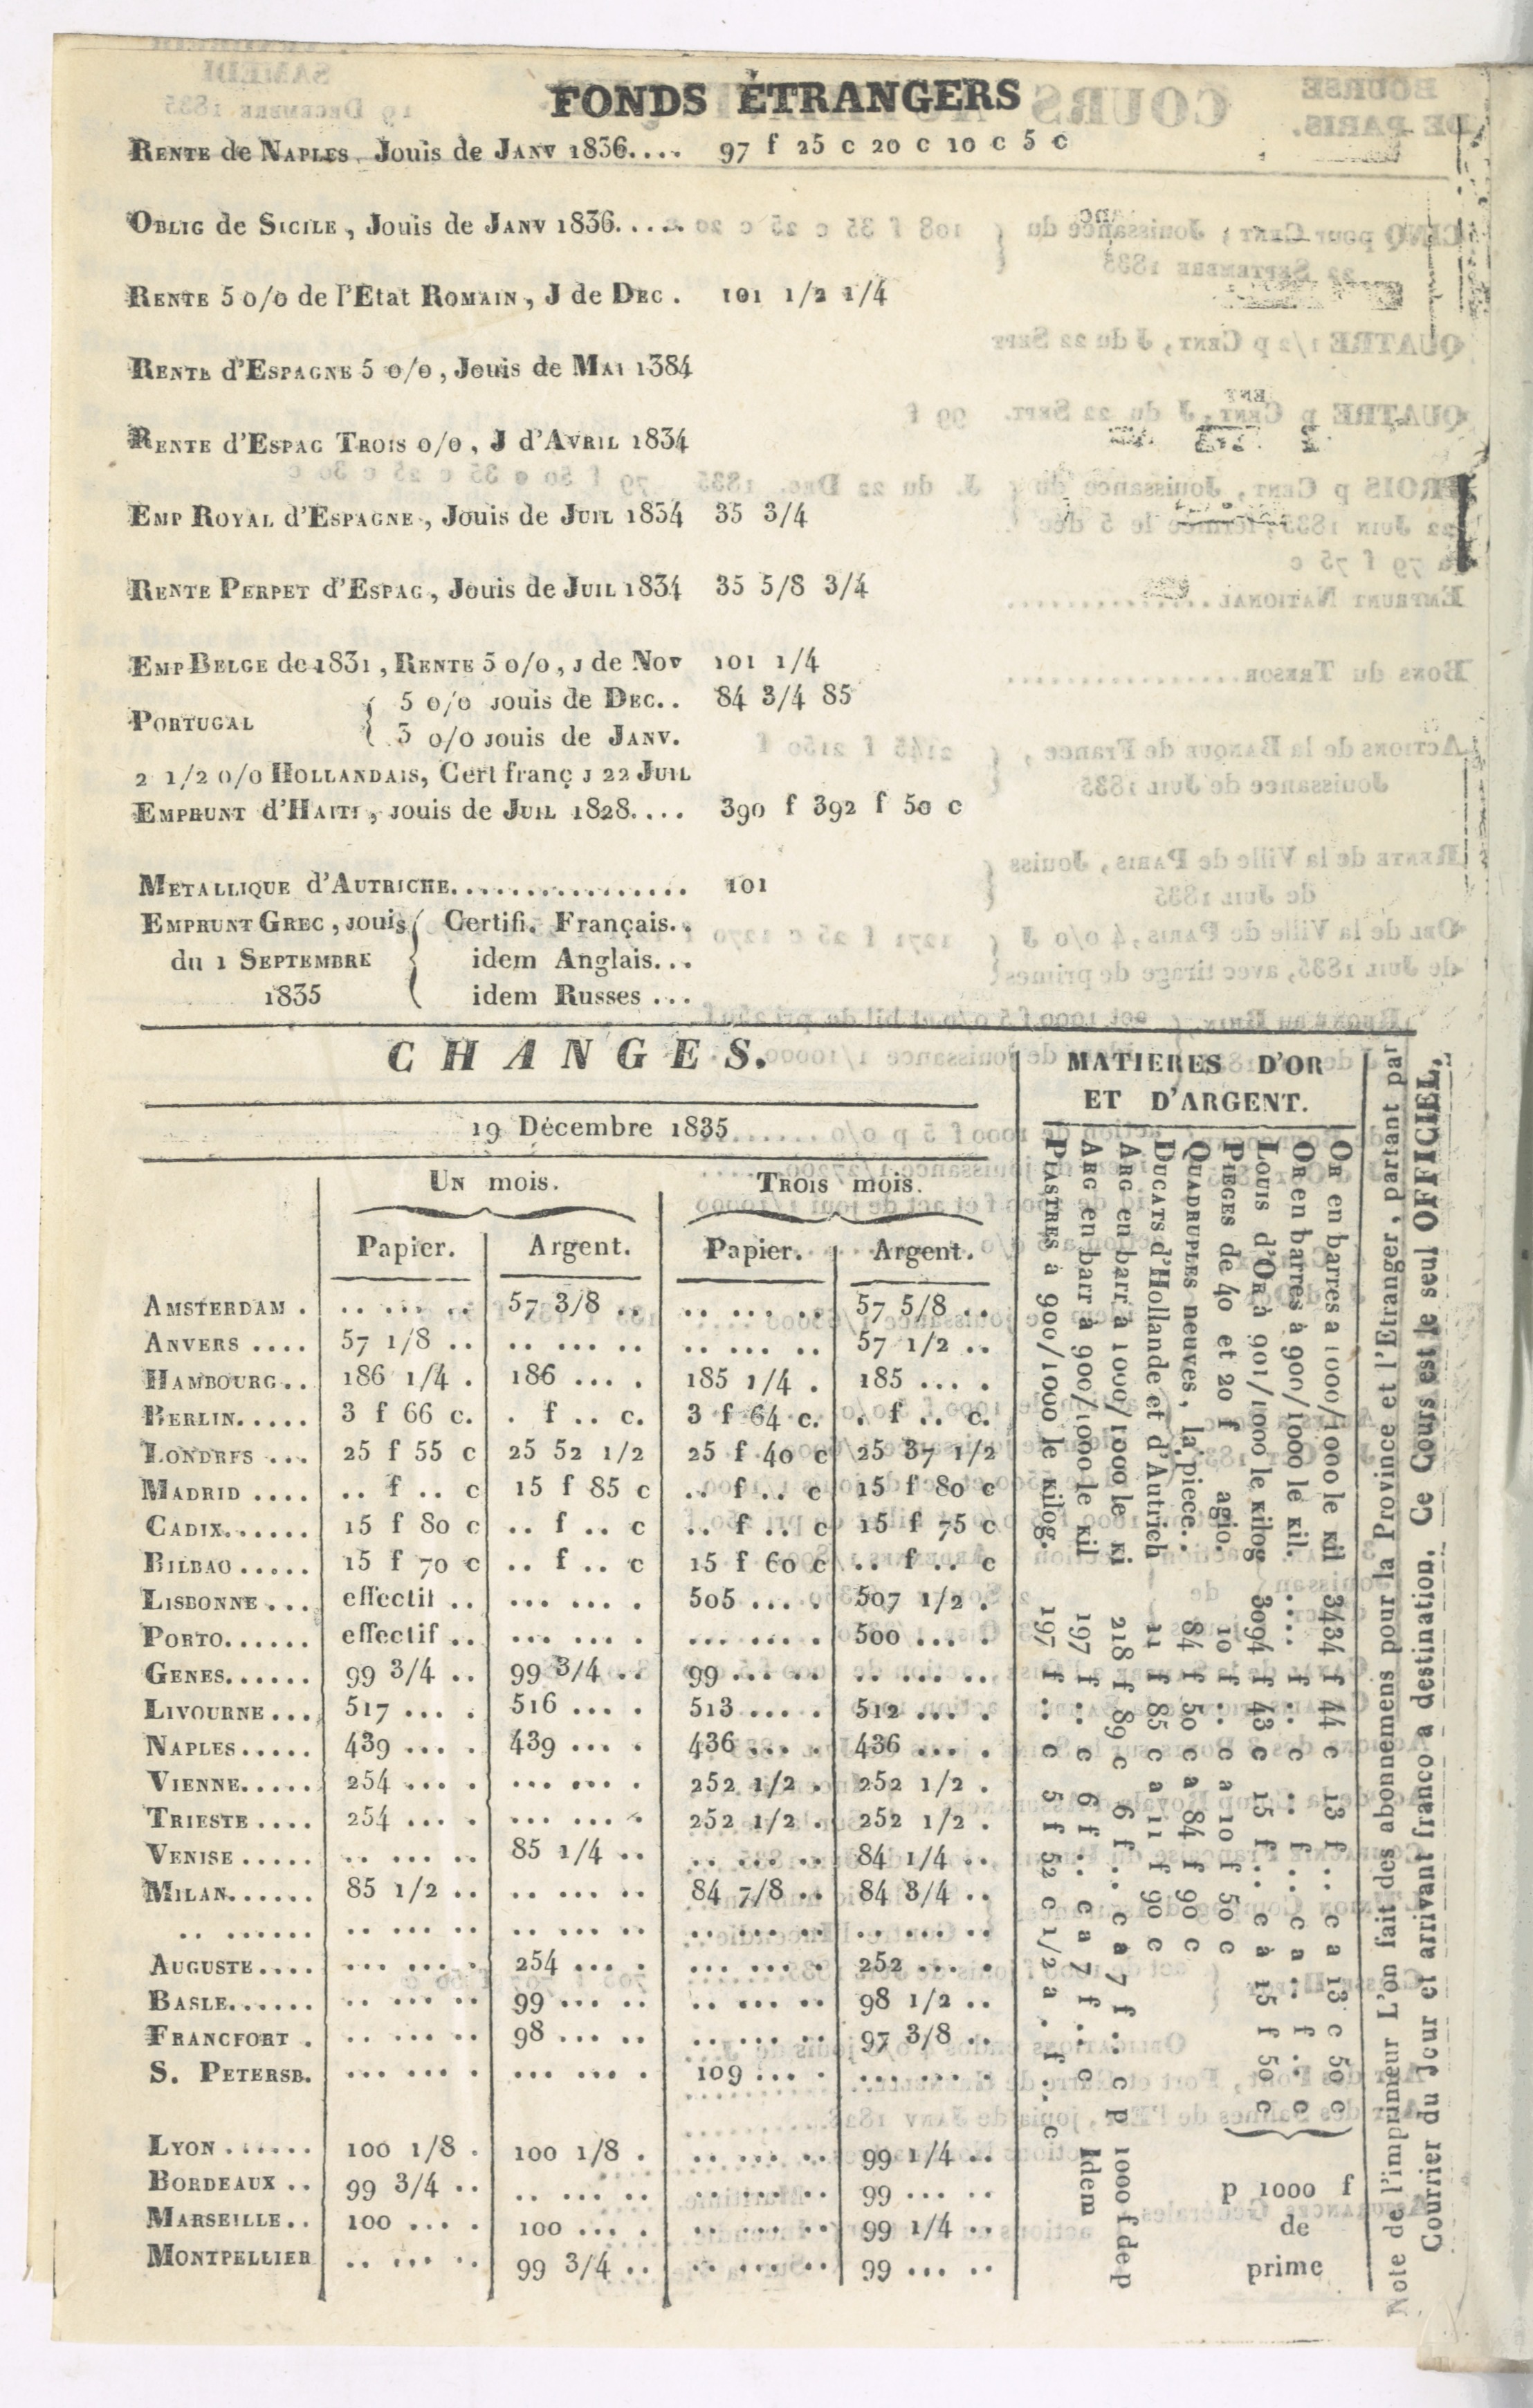 FONDS ÉTRANGERS
RENTE de NAPLES, Jouis de JANV 1836.... 97 f 25 c 20 c 10 c 5 c
OBLIG de SICILE, Jouis de JANV 1836.....
RENTE 5 o/o de l'Etat ROMAIN, J de DEC. 101 1/2 1/4
RENTE d'ESPAGNE 5 o/o, Jouis de MAI 1384
RENTE d'ESPAG TROIS o/o, J d'AVRIL 1834
EMP ROYAL d'ESPAGNE, Jouis de JUIL 1834 35 3/4
RENTE PERPET d'ESPAG, Jouis de JUIL 1834 35 5/8 3/4
EMP BELGE de 1831, RENTE 5 o/o, J de NOV 101 1/4
PORTUGAL { 5 o/o jouis de DEC.. 84 3/4 85
3 o/o jouis de JANV.
2 1/2 o/o HOLLANDAIS, Cert franç J 22 JUIL
EMPRUNT d'HAITI, jouis de JUIL 1828.... 390 f 392 f 50 c
METALLIQUE d'AUTRICHE................ 101
EMPRUNT GREC, jouis { Certifi. Français..
du 1 SEPTEMBRE idem Anglais...
1835 idem Russes ...
CHANGES.
19 Décembre 1835
UN mois. TROIS mois.
Papier. Argent. Papier. Argent.
AMSTERDAM . .. ... .. 57 3/8 .. .. ... .. 57 5/8 ..
ANVERS .... 57 1/8 .. .. ... .. .. ... .. 57 1/2 ..
HAMBOURG.. 186 1/4 . 186 ... . 185 1/4 . 185 ... .
BERLIN..... 3 f 66 c. . f .. c. 3 f 64 c. . f .. c.
LONDRES ... 25 f 55 c 25 52 1/2 25 f 40 c 25 37 1/2
MADRID .... .. f .. c 15 f 85 c .. f .. c 15 f 80 c
CADIX...... 15 f 80 c .. f .. c .. f .. c 15 f 75 c
BILBAO ..... 15 f 70 c .. f .. c 15 f 60 c .. f .. c
LISBONNE ... effectif .. ... ... . 505 ... . 507 1/2 .
PORTO...... effectif .. ... ... . ... ... . 500 ... .
GENES...... 99 3/4 .. 99 3/4 .. 99 ... .. .. ... ..
LIVOURNE... 517 ... . 516 ... . 513 ... . 512 ... .
NAPLES..... 439 ... . 439 ... . 436 ... . 436 ... .
VIENNE..... 254 ... . ... ... . 252 1/2 . 252 1/2 .
TRIESTE .... 254 ... . ... ... . 252 1/2 . 252 1/2 .
VENISE ..... .. ... .. 85 1/4 .. .. ... .. 84 1/4 ..
MILAN...... 85 1/2 .. .. ... .. 84 7/8 .. 84 3/4 ..
.. ...... .. ... .. .. ... .. .. ... .. .. ... ..
AUGUSTE.... ... ... . 254 ... . ... ... . 252 ... .
BASLE...... .. ... .. 99 ... .. .. ... .. 98 1/2 ..
FRANCFORT . .. ... .. 98 ... .. .. ... .. 97 3/8 ..
S. PETERSB. ... ... . ... ... . 109 ... . ... ... .
LYON ...... 100 1/8 . 100 1/8 . .. ... .. 99 1/4 ..
BORDEAUX .. 99 3/4 .. .. ... .. .. ... .. 99 ... ..
MARSEILLE.. 100 ... . 100 ... . .. ... .. 99 1/4 ..
MONTPELLIER .. ... .. 99 3/4 .. .. ... .. 99 ... ..
MATIERES D'OR
ET D'ARGENT.
OR en barres a 1000/1000 le Kil 3434 f 44 c 13 f .. c a 13 c 50 c
OR en barres à 900/1000 le Kil. .... f .. c .. f .. c a .. f .. c
LOUIS d'OR à 901/1000 le Kilog 3094 f 43 c 15 f .. c à 15 f 50 c
PIEGES de 40 et 20 f agio. 10 f .. c a 10 f 50 c
QUADRUPLES neuves, la piece. 84 f 50 c a 84 f 90 c
DUCATS d'Hollande et d'Autrich 11 f 85 c a 11 f 90 c
ARG en barr à 1000/1000 le Ki 218 f 89 c 6 f .. c a 7 f .. c p 1000 f de p
ARG en barr à 900/1000 le Kil 197 f .. c 6 f .. c a 7 f .. c Idem
PIASTRES à 900/1000 le Kilog. 197 f .. c 5 f 52 c 1/2 a . f .. c
p 1000 f
de
prime
Note de l'imprimeur L'on fait des abonnemens pour la Province et l'Etranger, partant par
Courrier du Jour et arrivant franco a destination. Ce Cours est le seul OFFICIEL,